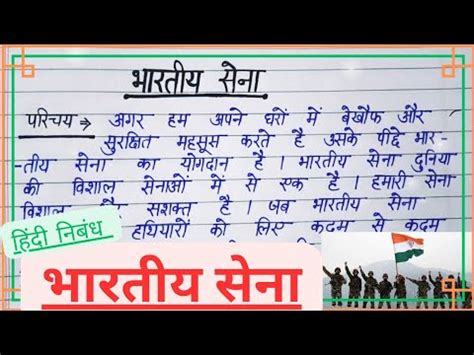 भारतीय सेना
परिचय → अगर हम अपने घरों में बेखौफ और
सुरक्षित महसूस करते है उसके पीछे भार
-तीय सेना का योगदान है । भारतीय सेना दुनिया
की विशाल सेनाओं में से एक है । हमारी सेना
विशाल सशक्त है । जब भारतीय सेना
हथियारों को लिए कदम से कदम
हिंदी निबंध
भारतीय सेना